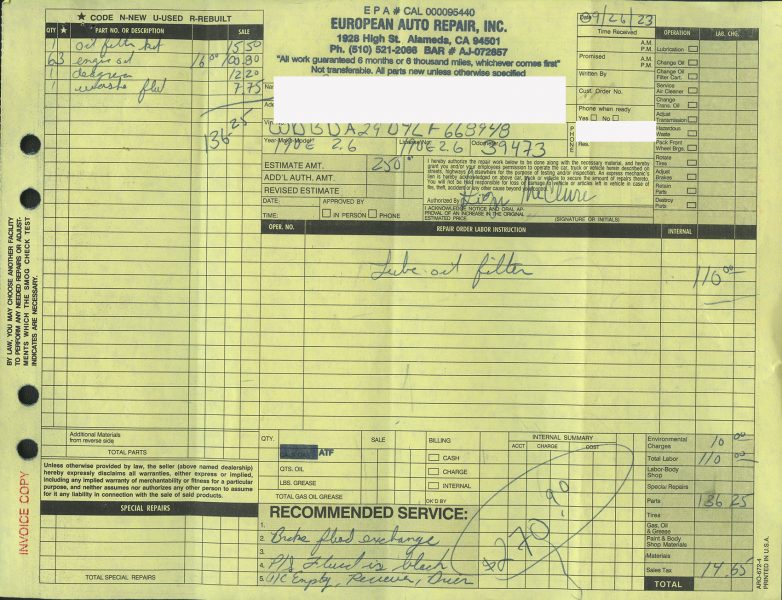 ★ CODE N-NEW U-USED R-REBUILT
QTY ★ PART NO. OR DESCRIPTION SALE
1 oil filter kit 15.50
6.3 engine oil 16.00 100.80
1 degreaser 12.20
1 waste fluid 7.75
136.25
Additional Materials
from reverse side
TOTAL PARTS
Unless otherwise provided by law, the seller (above named dealership)
hereby expressly disclaims all warranties, either express or implied,
including any implied warranty of merchantability or fitness for a particular
purpose, and neither assumes nor authorizes any other person to assume
for it any liability in connection with the sale of said products.
SPECIAL REPAIRS
TOTAL SPECIAL REPAIRS
BY LAW, YOU MAY CHOOSE ANOTHER FACILITY
TO PERFORM ANY NEEDED REPAIRS OR ADJUST-
MENTS WHICH THE SMOG CHECK TEST
INDICATES ARE NECESSARY.
INVOICE COPY
EPA # CAL 000095440
EUROPEAN AUTO REPAIR, INC.
1928 High St. Alameda, CA 94501
Ph. (510) 521-2086 BAR # AJ-072857
"All work guaranteed 6 months or 6 thousand miles, whichever comes first"
Not transferable. All parts new unless otherwise specified
Date 9/26/23
Time Received A.M. P.M.
Promised A.M. P.M.
Written By
Cust Order No.
Phone when ready
Yes No
PHONE
Res.
Year-Make-Model 190E 2.6 License No. 190E 2.6 Odometer 39473
ESTIMATE AMT. 250
ADD'L AUTH. AMT.
REVISED ESTIMATE
DATE: APPROVED BY
TIME: IN PERSON PHONE
I hereby authorize the repair work below to be done along with the necessary material, and hereby
grant you and/or your employees permission to operate the car, truck or vehicle herein described on
streets, highways or elsewhere for the purpose of testing and/or inspection. An express mechanic's
lien is hereby acknowledged on above car, truck or vehicle to secure the amount of repairs thereto.
You will not be held responsible for loss or damage to vehicle or articles left in vehicle in case of
fire, theft, accident or any other cause beyond your control.
Authorized By McClure
I ACKNOWLEDGE NOTICE AND ORAL AP-
PROVAL OF AN INCREASE IN THE ORIGINAL
ESTIMATED PRICE. (SIGNATURE OR INITIALS)
OPERATION LAB. CHG.
Lubrication
Change Oil
Change Oil
Filter Cart.
Service
Air Cleaner
Change
Trans. Oil
Adjust
Transmission
Hazardous
Waste
Pack Front
Wheel Brgs.
Rotate
Tires
Adjust
Brakes
Retain
Parts
Destroy
Parts
OPER. NO. REPAIR ORDER LABOR INSTRUCTION INTERNAL
Lube oil filter 110.00
QTY. SALE
ATF
QTS. OIL
LBS. GREASE
TOTAL GAS OIL GREASE
BILLING
CASH
CHARGE
INTERNAL
OK'D BY
INTERNAL SUMMARY
ACCT CHARGE COST
$270.90
RECOMMENDED SERVICE:
1.
2. Brake fluid exchange
3.
4. P/S Fluid is black
5. A/C Empty, Receiver, Drier
Environmental
Charges 10.00
Total Labor 110.00
Labor-Body
Shop
Special Repairs
Parts 136.25
Tires
Gas, Oil
& Grease
Paint & Body
Shop Materials
Materials
Sales Tax 14.65
TOTAL
ARO-672-4
PRINTED IN U.S.A.